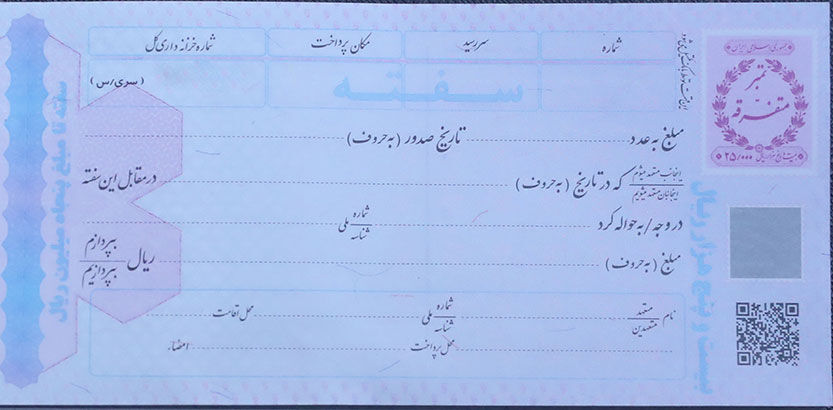 شماره
سررسید
مکان پرداخت
شماره خزانه داری کل
(سری/س)
سفته
جمهوری اسلامی ایران
تمبر
متفرقه
۲۵/۰۰۰
مبلغ به عدد تاریخ صدور (به حروف)
اینجانب متعهد میشوم
اینجانبان متعهد میشویم
که در تاریخ (به حروف) در مقابل این سفته
در وجه/به حواله کرد شماره ملی
شناسه
مبلغ (به حروف) ریال بپردازم
بپردازیم
نام متعهد شماره ملی محل اقامت
متعهدین شناسه
محل پرداخت امضاء
سفته تا مبلغ پنجاه میلیون ریال
بیست و پنج هزار ریال